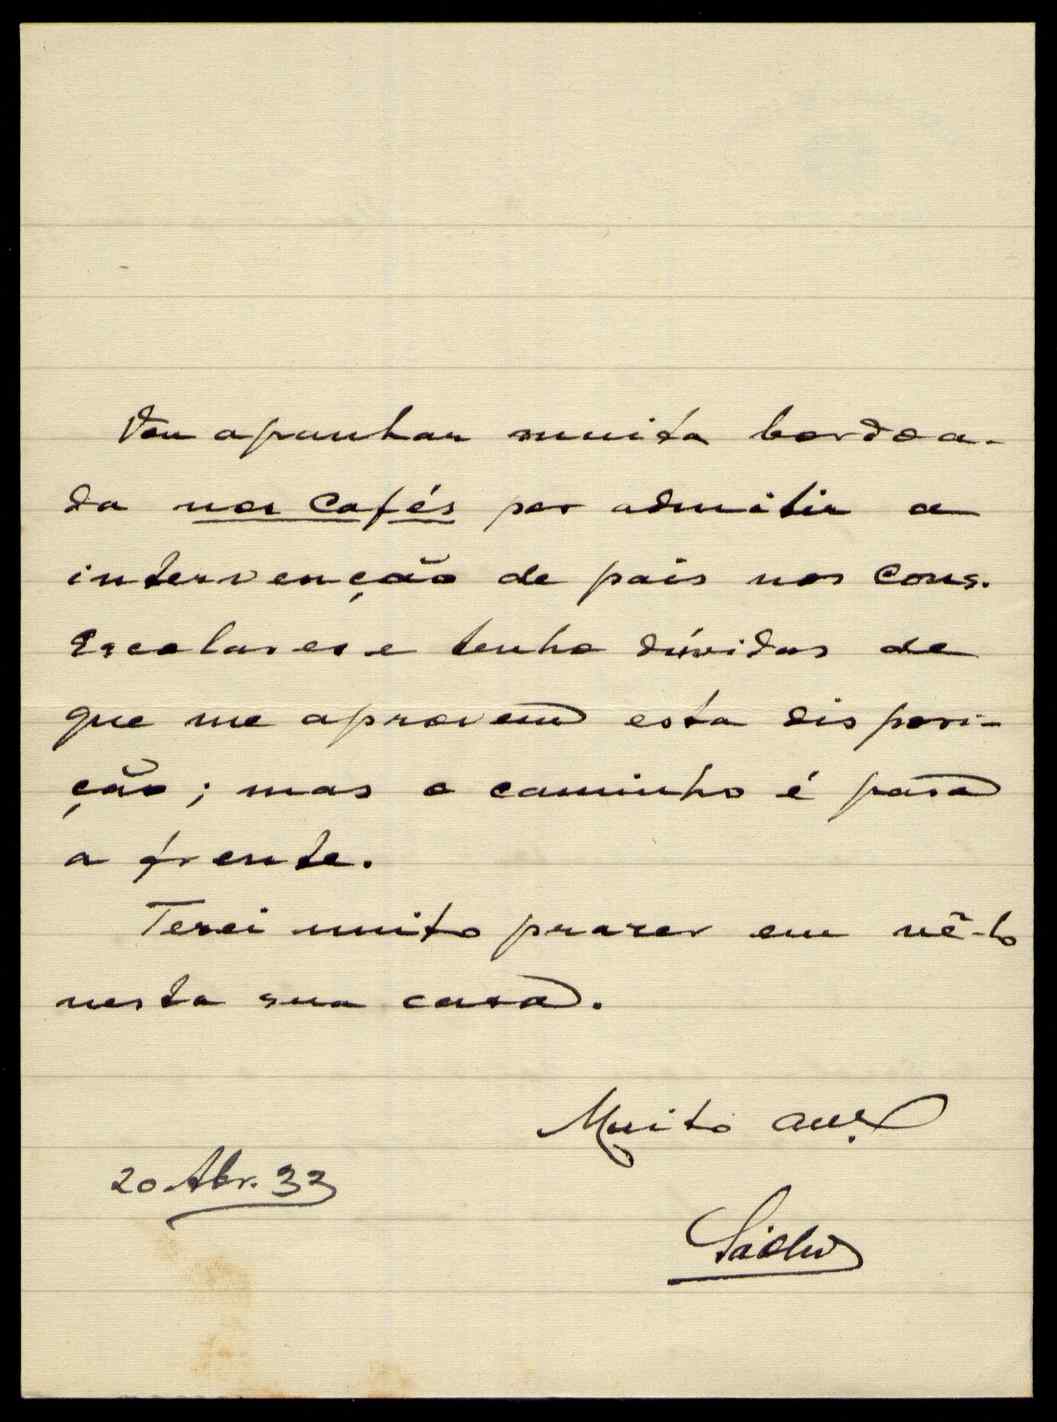 Vou apanhar muita bordoa-
da nos cafés por admitir a
intervenção de pais nos Cons.
Escolares e tenho dúvidas de
que me aprovem esta disposi-
ção; mas o caminho é para
a frente.
Terei muito prazer em vê-lo
nesta sua casa.
Muito
20 Abr. 33